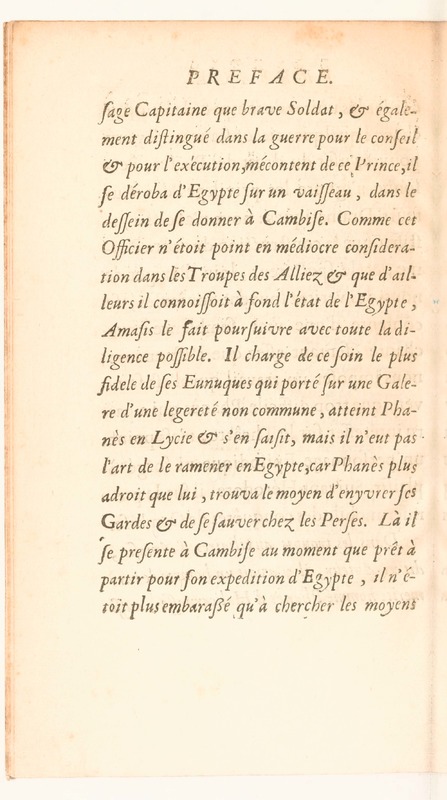 PREFACE.
ſage Capitaine que brave Soldat, & égale-
ment diſtingué dans la guerre pour le conſeil
& pour l'execution, mécontent de ce Prince, il
ſe déroba d'Egypte ſur un vaiſſeau, dans le
deſſein de ſe donner à Cambiſe. Comme cet
Officier n'étoit point en médiocre conſidera-
tion dans les Troupes des Alliez & que d'ail-
leurs il connoiſſoit à fond l'état de l'Egypte,
Amaſis le fait pourſuivre avec toute la di-
ligence poſſible. Il charge de ce ſoin le plus
fidele de ſes Eunuques qui porté ſur une Gale-
re d'une legereté non commune, atteint Pha-
nès en Lycie & s'en ſaiſit, mais il n'eut pas
l'art de le ramener en Egypte, car Phanès plus
adroit que lui, trouva le moyen d'enyvrer ſes
Gardes & de ſe ſauver chez les Perſes. Là il
ſe preſente à Cambiſe au moment que prêt à
partir pour ſon expedition d'Egypte, il n'é-
toit plus embaraßé qu'à chercher les moyens